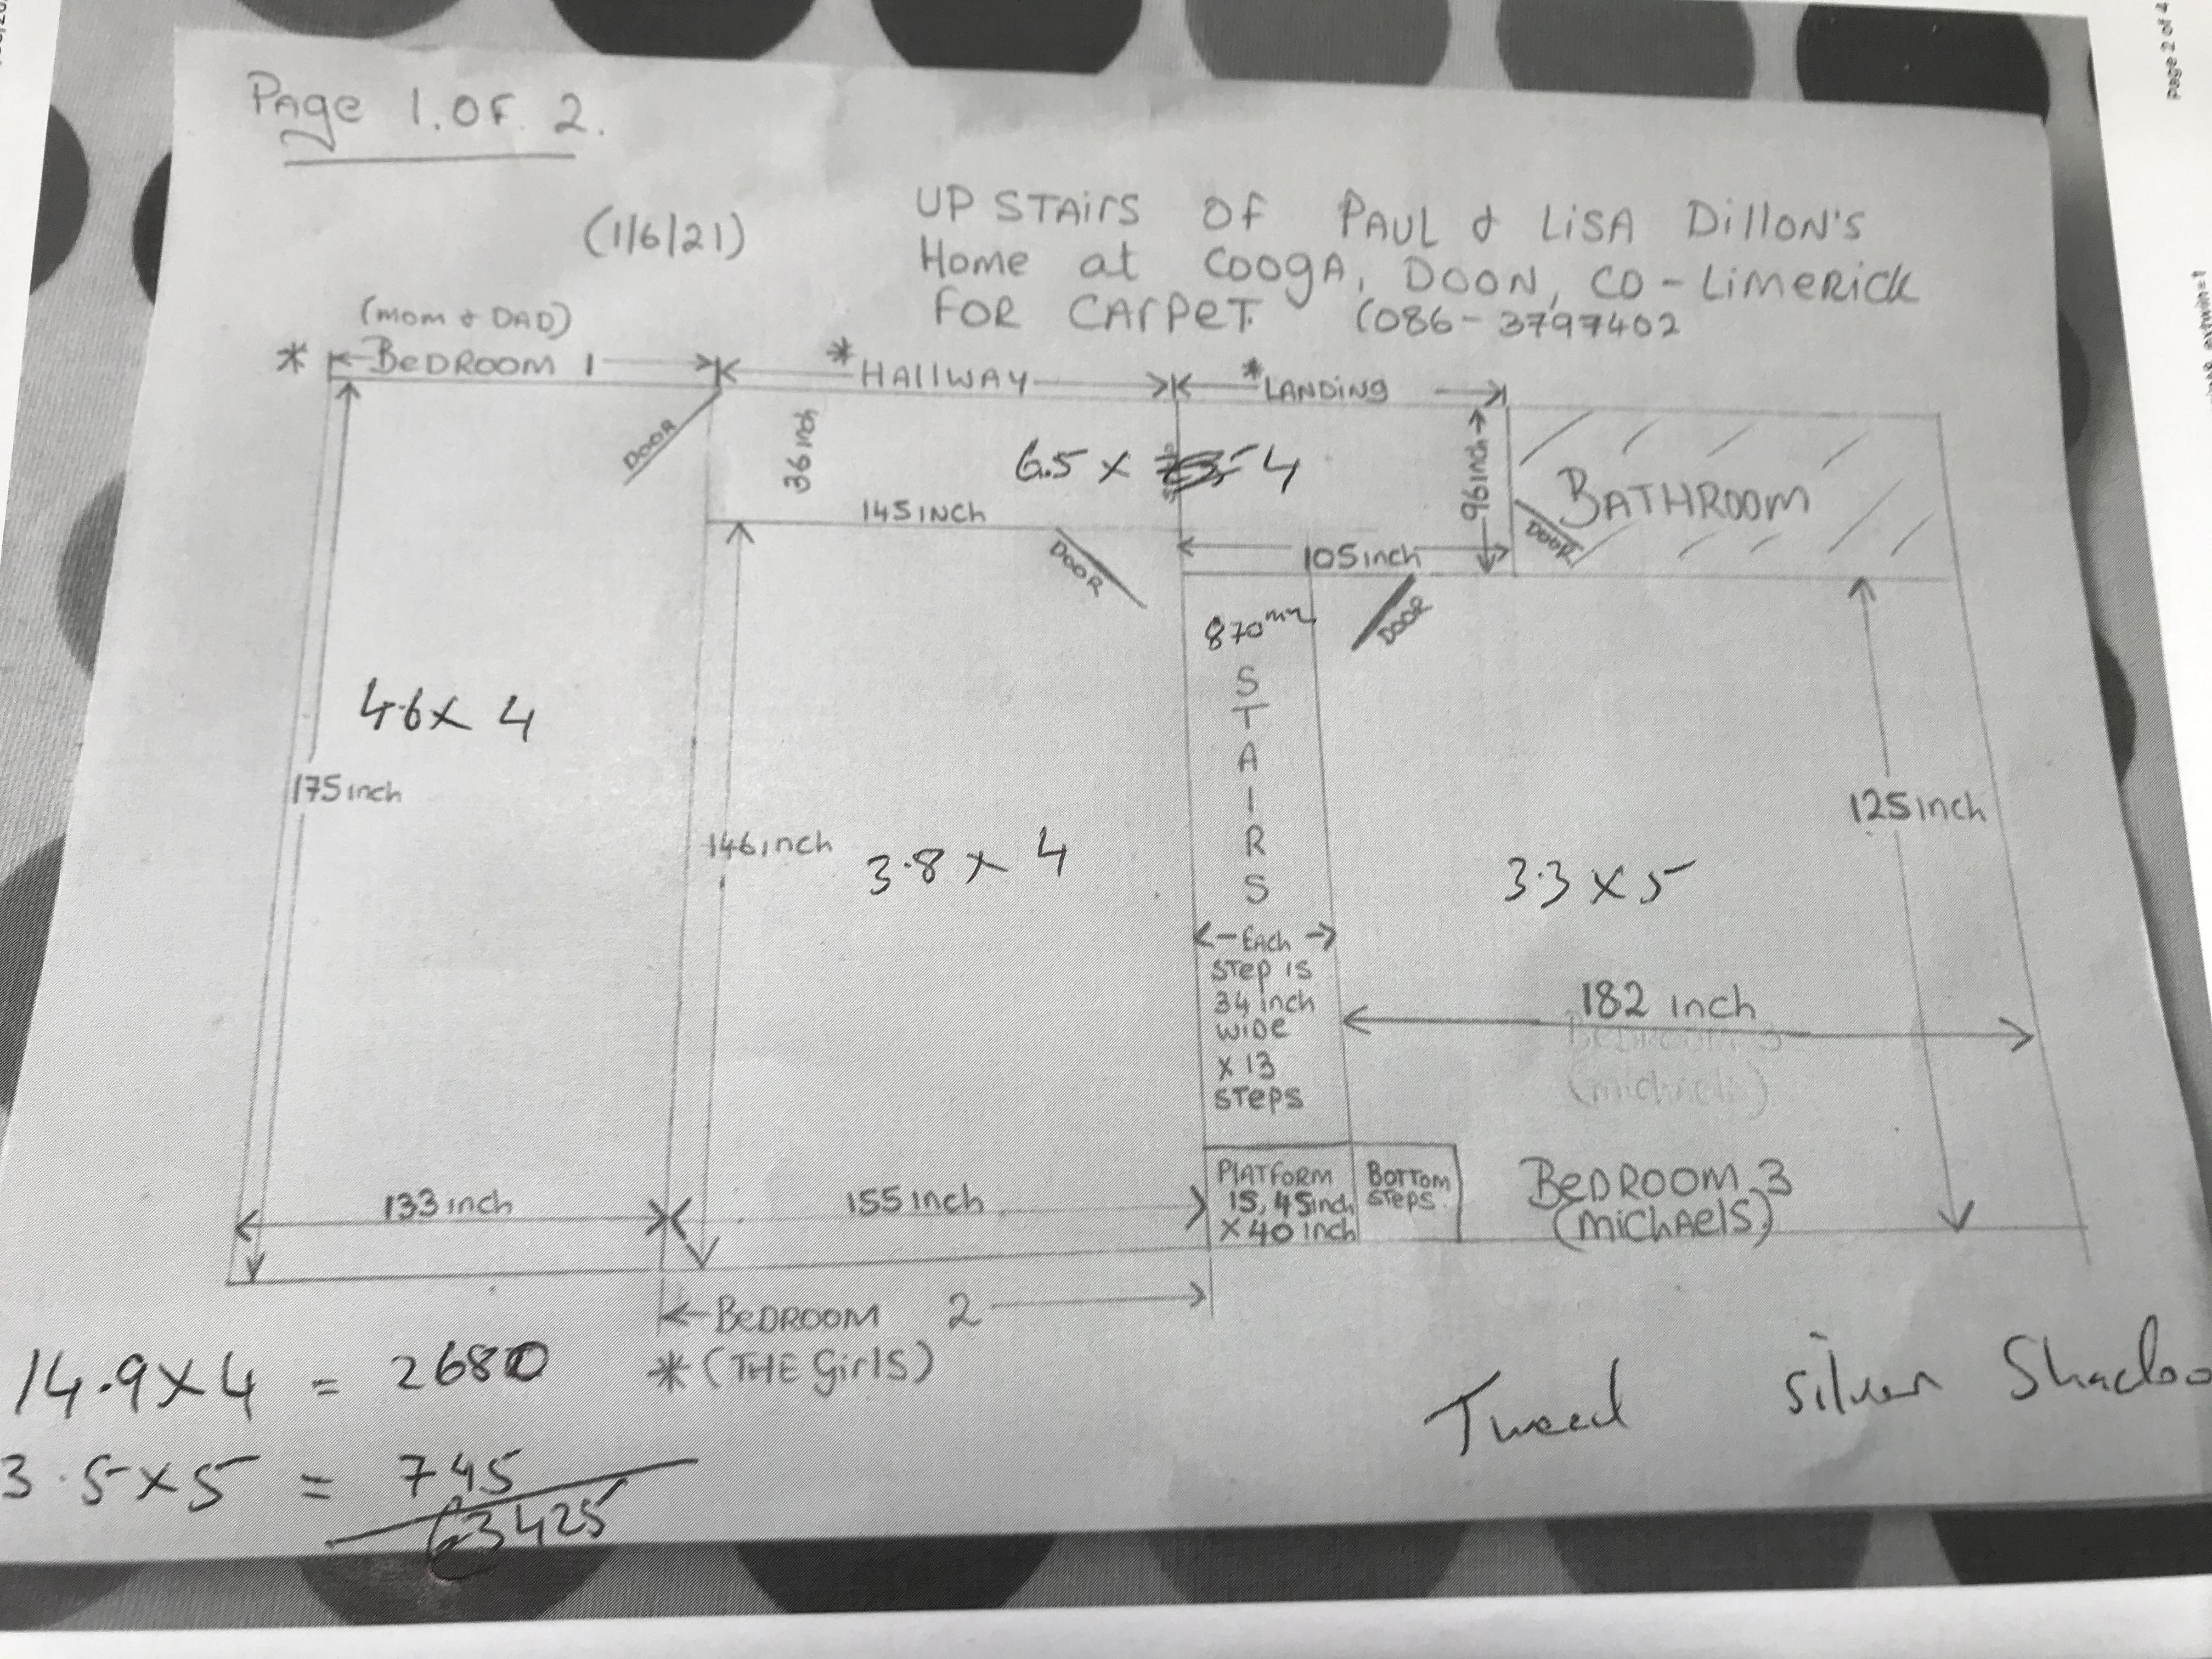 Page 2 of 4
Page 1. OF. 2.
(1/6/21)
UP STAirS OF PAUL & LiSA DillON'S
Home at COOGA, DOON, CO-LiMERiCK
FOR CArPeT. (086-3797402
(MOM & DAD)
* BeDROOM 1
* HAllWAY
* LANDiNG
DOOR
36 inch
6.5 x 4
96 inch
BATHROOM
145 INCH
DOOR
105 inch
DOOR
870mm
DOOR
STAIRS
4.6 x 4
175 inch
146 inch
3.8 x 4
3.3 x 5
125 inch
← EACH →
STep is
34 inch
WiDe
x 13
STePS
182 inch
BEDROOM 3
(michaels)
PlATFORM
15, 45inch
x 40 inch
BOTTOM
STePS.
BeDROOM 3
(MiCHAelS)
133 inch
155 inch
BeDROOM 2
* (THE GirlS)
14.9 x 4 = 2680
3.5 x 5 = 745
€3425
Tweed Silver Shadoo